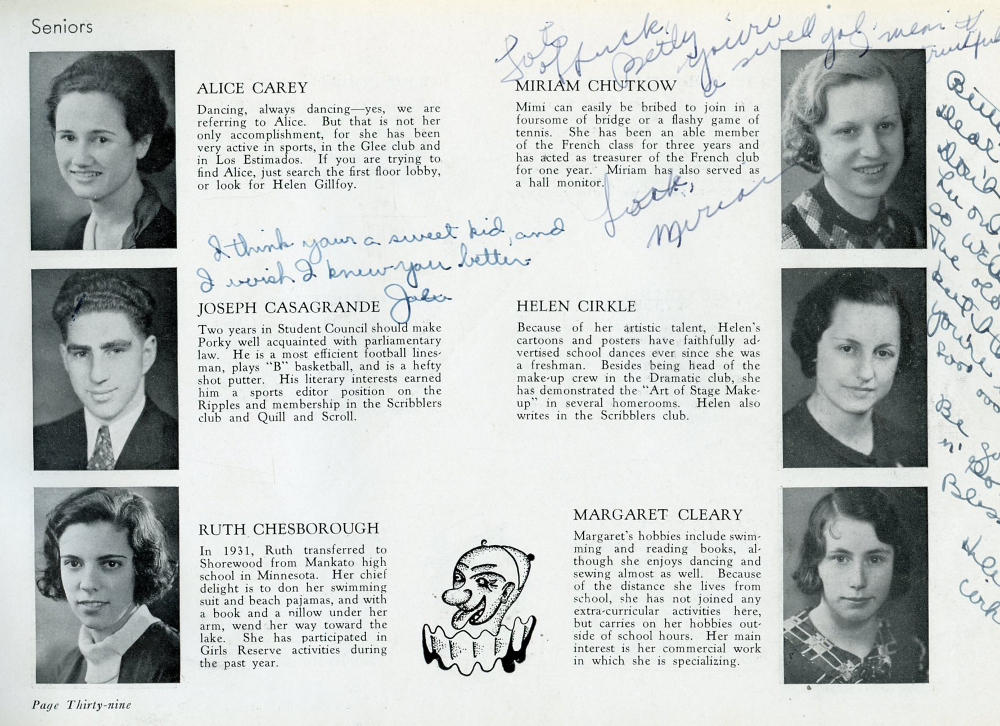 Seniors
ALICE CAREY
Dancing, always dancing—yes, we are
referring to Alice. But that is not her
only accomplishment, for she has been
very active in sports, in the Glee club and
in Los Estimados. If you are trying to
find Alice, just search the first floor lobby,
or look for Helen Gillfoy.
I think your a sweet kid, and
I wish I knew you better.
JOSEPH CASAGRANDE
Two years in Student Council should make
Porky well acquainted with parliamentary
law. He is a most efficient football lines-
man, plays "B" basketball, and is a hefty
shot putter. His literary interests earned
him a sports editor position on the
Ripples and membership in the Scribblers
club and Quill and Scroll.
RUTH CHESBOROUGH
In 1931, Ruth transferred to
Shorewood from Mankato high
school in Minnesota. Her chief
delight is to don her swimming
suit and beach pajamas, and with
a book and a pillow under her
arm, wend her way toward the
lake. She has participated in
Girls Reserve activities during
the past year.
Page Thirty-nine
Lots of luck,
Betty you're
a swell gal
MIRIAM CHUTKOW
Mimi can easily be bribed to join in a
foursome of bridge or a flashy game of
tennis. She has been an able member
of the French class for three years and
has acted as treasurer of the French club
for one year. Miriam has also served as
a hall monitor.
Luck,
Miriam
HELEN CIRKLE
Because of her artistic talent, Helen's
cartoons and posters have faithfully ad-
vertised school dances ever since she was
a freshman. Besides being head of the
make-up crew in the Dramatic club, she
has demonstrated the "Art of Stage Make-
up" in several homerooms. Helen also
writes in the Scribblers club.
MARGARET CLEARY
Margaret's hobbies include swim-
ming and reading books, al-
though she enjoys dancing and
sewing almost as well. Because
of the distance she lives from
school, she has not joined any
extra-curricular activities here,
but carries on her hobbies out-
side of school hours. Her main
interest is her commercial work
in which she is specializing.
dear
the old
you're
Be